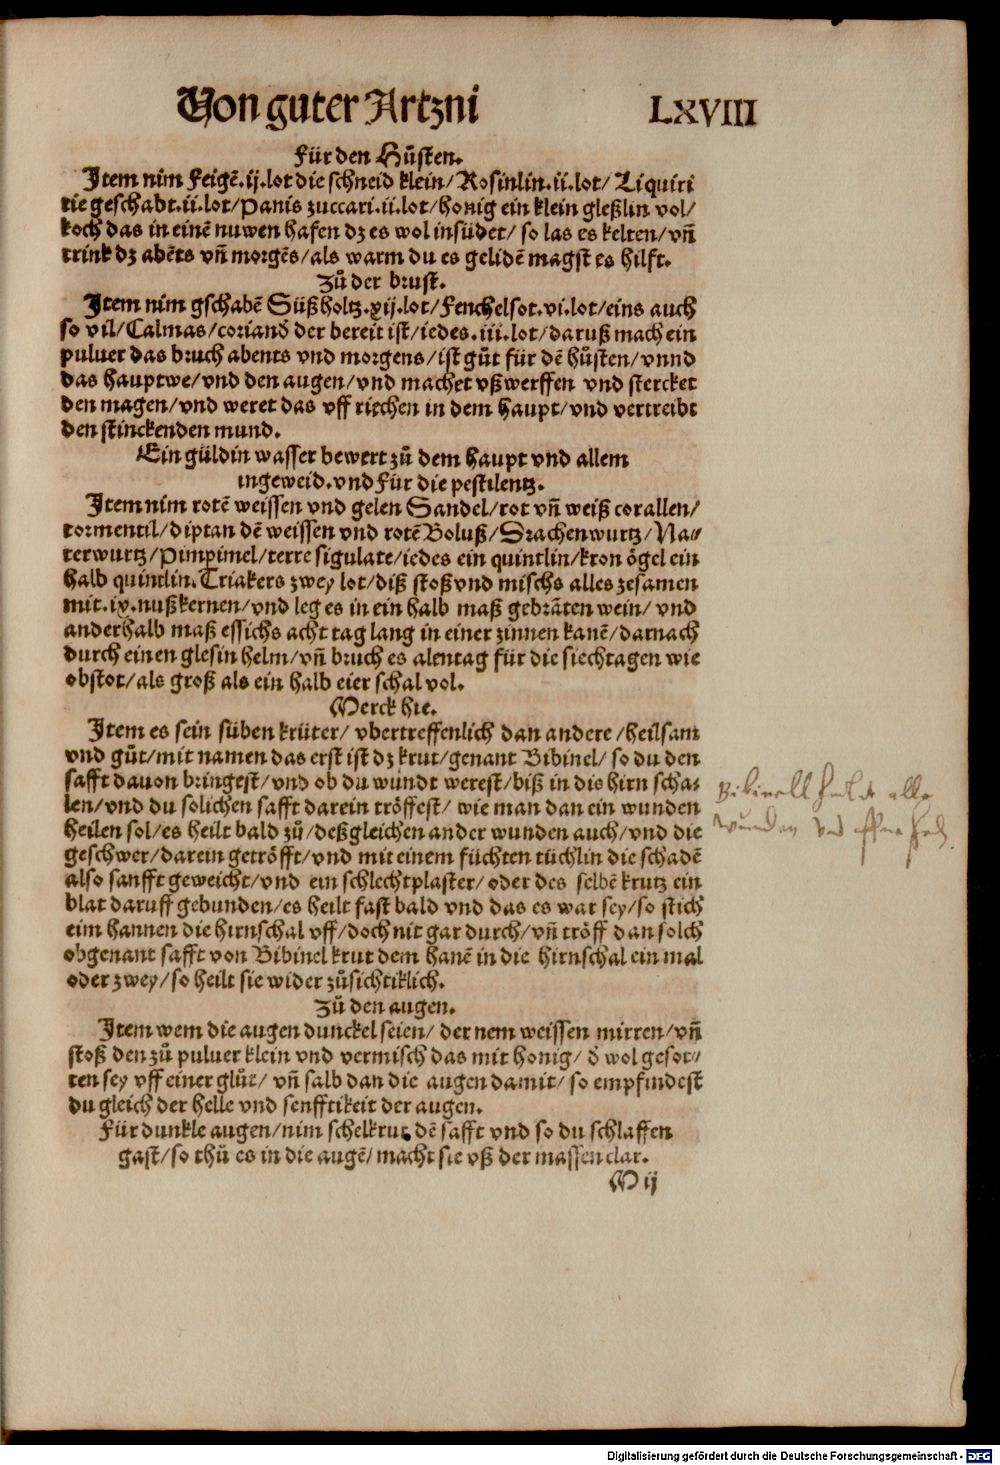 Von guter Artzni LXVIII
Für den Hůsten.
Item nim Feigē.ij.lot die schneid klein/Rosinlin.ii.lot/Liquiri
tie geschabt.ii.lot/Panis zuccari.ii.lot/honig ein klein gleßlin vol/
koch das in einē nuwen hafen dz es wol insüdet/ so las es kelten/vñ
trink dz abēts vñ morgēs/als warm du es gelidē magst es hilft.
Zů der brust.
Item nim gschabē Süßholtz.xij.lot/Fenchelsot.vi.lot/eins auch
so vil/Calmas/coriand̄ der bereit ist/iedes.iii.lot/daruß mach ein
puluer das bruch abents vnd morgens/ist gůt für dē hůsten/vnnd
das hauptwe/vnd den augen/vnd machet vßwerffen vnd stercket
den magen/vnd weret das vff riechen in dem haupt/vnd vertreibt
den stinckenden mund.
Ein güldin wasser bewert zů dem haupt vnd allem
ingeweid.vnd für die pestilentz.
Item nim rotē weissen vnd gelen Sandel/rot vñ weiß corallen/
tormentil/diptan dē weissen vnd rotē Boluß/Drachenwurtz/Na⸗
terwurtz/Pimpimel/terre sigulate/iedes ein quintlin/kron ögel ein
halb quintlin.Triakers zwey lot/diß stoß vnd mischs alles zesamen
mit.ix.nußkernen/vnd leg es in ein halb maß gebrāten wein/ vnd
anderhalb maß essichs acht tag lang in einer zinnen kanē/darnach
durch einen glesin helm/vñ bruch es alentag für die siechtagen wie
obstot/als groß als ein halb eier schal vol.
Merck hie.
Item es sein süben krüter/ vbertreffenlich dan andere/heilsam
vnd gůt/mit namen das erst ist dz krut/genant Bibinel/ so du den
safft dauon bringest/vnd ob du wundt werest/biß in die hirn scha⸗
len/vnd du solichen safft darein tröffest/ wie man dan ein wunden
heilen sol/es heilt bald zů/deßgleichen ander wunden auch/vnd die
geschwer/darein getröfft/vnd mit einem füchten tüchlin die schadē
also sanfft geweicht/vnd ein schlechtplaster/oder des selbē krutz ein
blat daruff gebunden/es heilt fast bald vnd das es war sey/so stich
eim hannen die hirnschal vff/doch nit gar durch/vñ tröff dan solch
obgenant safft von Bibinel krut dem hanē in die hirnschal ein mal
oder zwey/so heilt sie wider zůsichtiklich.
Zů den augen.
Item wem die augen dunckel seien/ der nem weissen mirren/vñ
stoß den zů puluer klein vnd vermisch das mit honig/ d̄ wol gesot⸗
ten sey vff einer glůt/ vñ salb dan die augen damit/so empfindest
du gleich der helle vnd senfftikeit der augen.
Für dunkle augen/nim schelkrut dē safft vnd so du schlaffen
gast/so thů es in die augē/macht sie vß der massen clar.
M ij
Bibinell heilt alle
wunden vnd
Digitalisierung gefördert durch die Deutsche Forschungsgemeinschaft - DFG